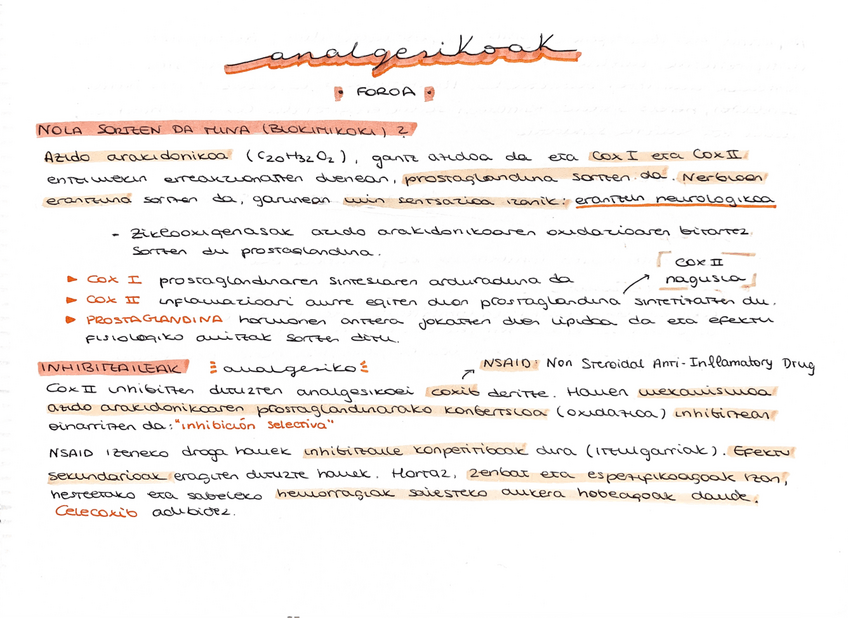 analgesikoak
• FOROA •
NOLA SORTZEN DA MINA (BIOKIMIKOKI) ?
Azido arakidonikoa (C20H32O2), gantz azidoa da eta COX I eta COX II
entzimekin erreakzionatzen duenean, prostaglandina sortzen da. Nerbioen
erantzuna sortzen da, garunean min sentsazioa izanik: erantzun neurologikoa
- Ziklooxigenasak azido arakidonikoaren oxidazioaren bitartez
sortzen du prostaglandina.
COX II
nagusia
► COX I prostaglandinaren sintesiaren arduraduna da
► COX II inflamazioari aurre egiten dion prostaglandina sintetizatzen du.
► PROSTAGLANDINA hormonen antzera jokatzen duen lipidoa da eta efektu
fisiologiko anitzak sortzen ditu.
INHIBITZAILEAK analgesiko NSAID: Non Steroidal Anti-Inflamatory Drug
COX II inhibitzen dituzten analgesikoei coxib deritze. Hauen mekanismoa
azido arakidonikoaren prostaglandinarako konbertsioa (oxidazioa) inhibitzean
oinarritzen da: "inhibición selectiva"
NSAID izeneko droga hauek inhibitzaile konpetitiboak dira (itzulgarriak). Efektu
sekundarioak eragiten dituzte hauek. Hortaz, zenbat eta espezifikoagoak izan,
hesteetako eta sabeleko hemorragiak saiesteko aukera hobeagoak daude.
Celecoxib adibidez.